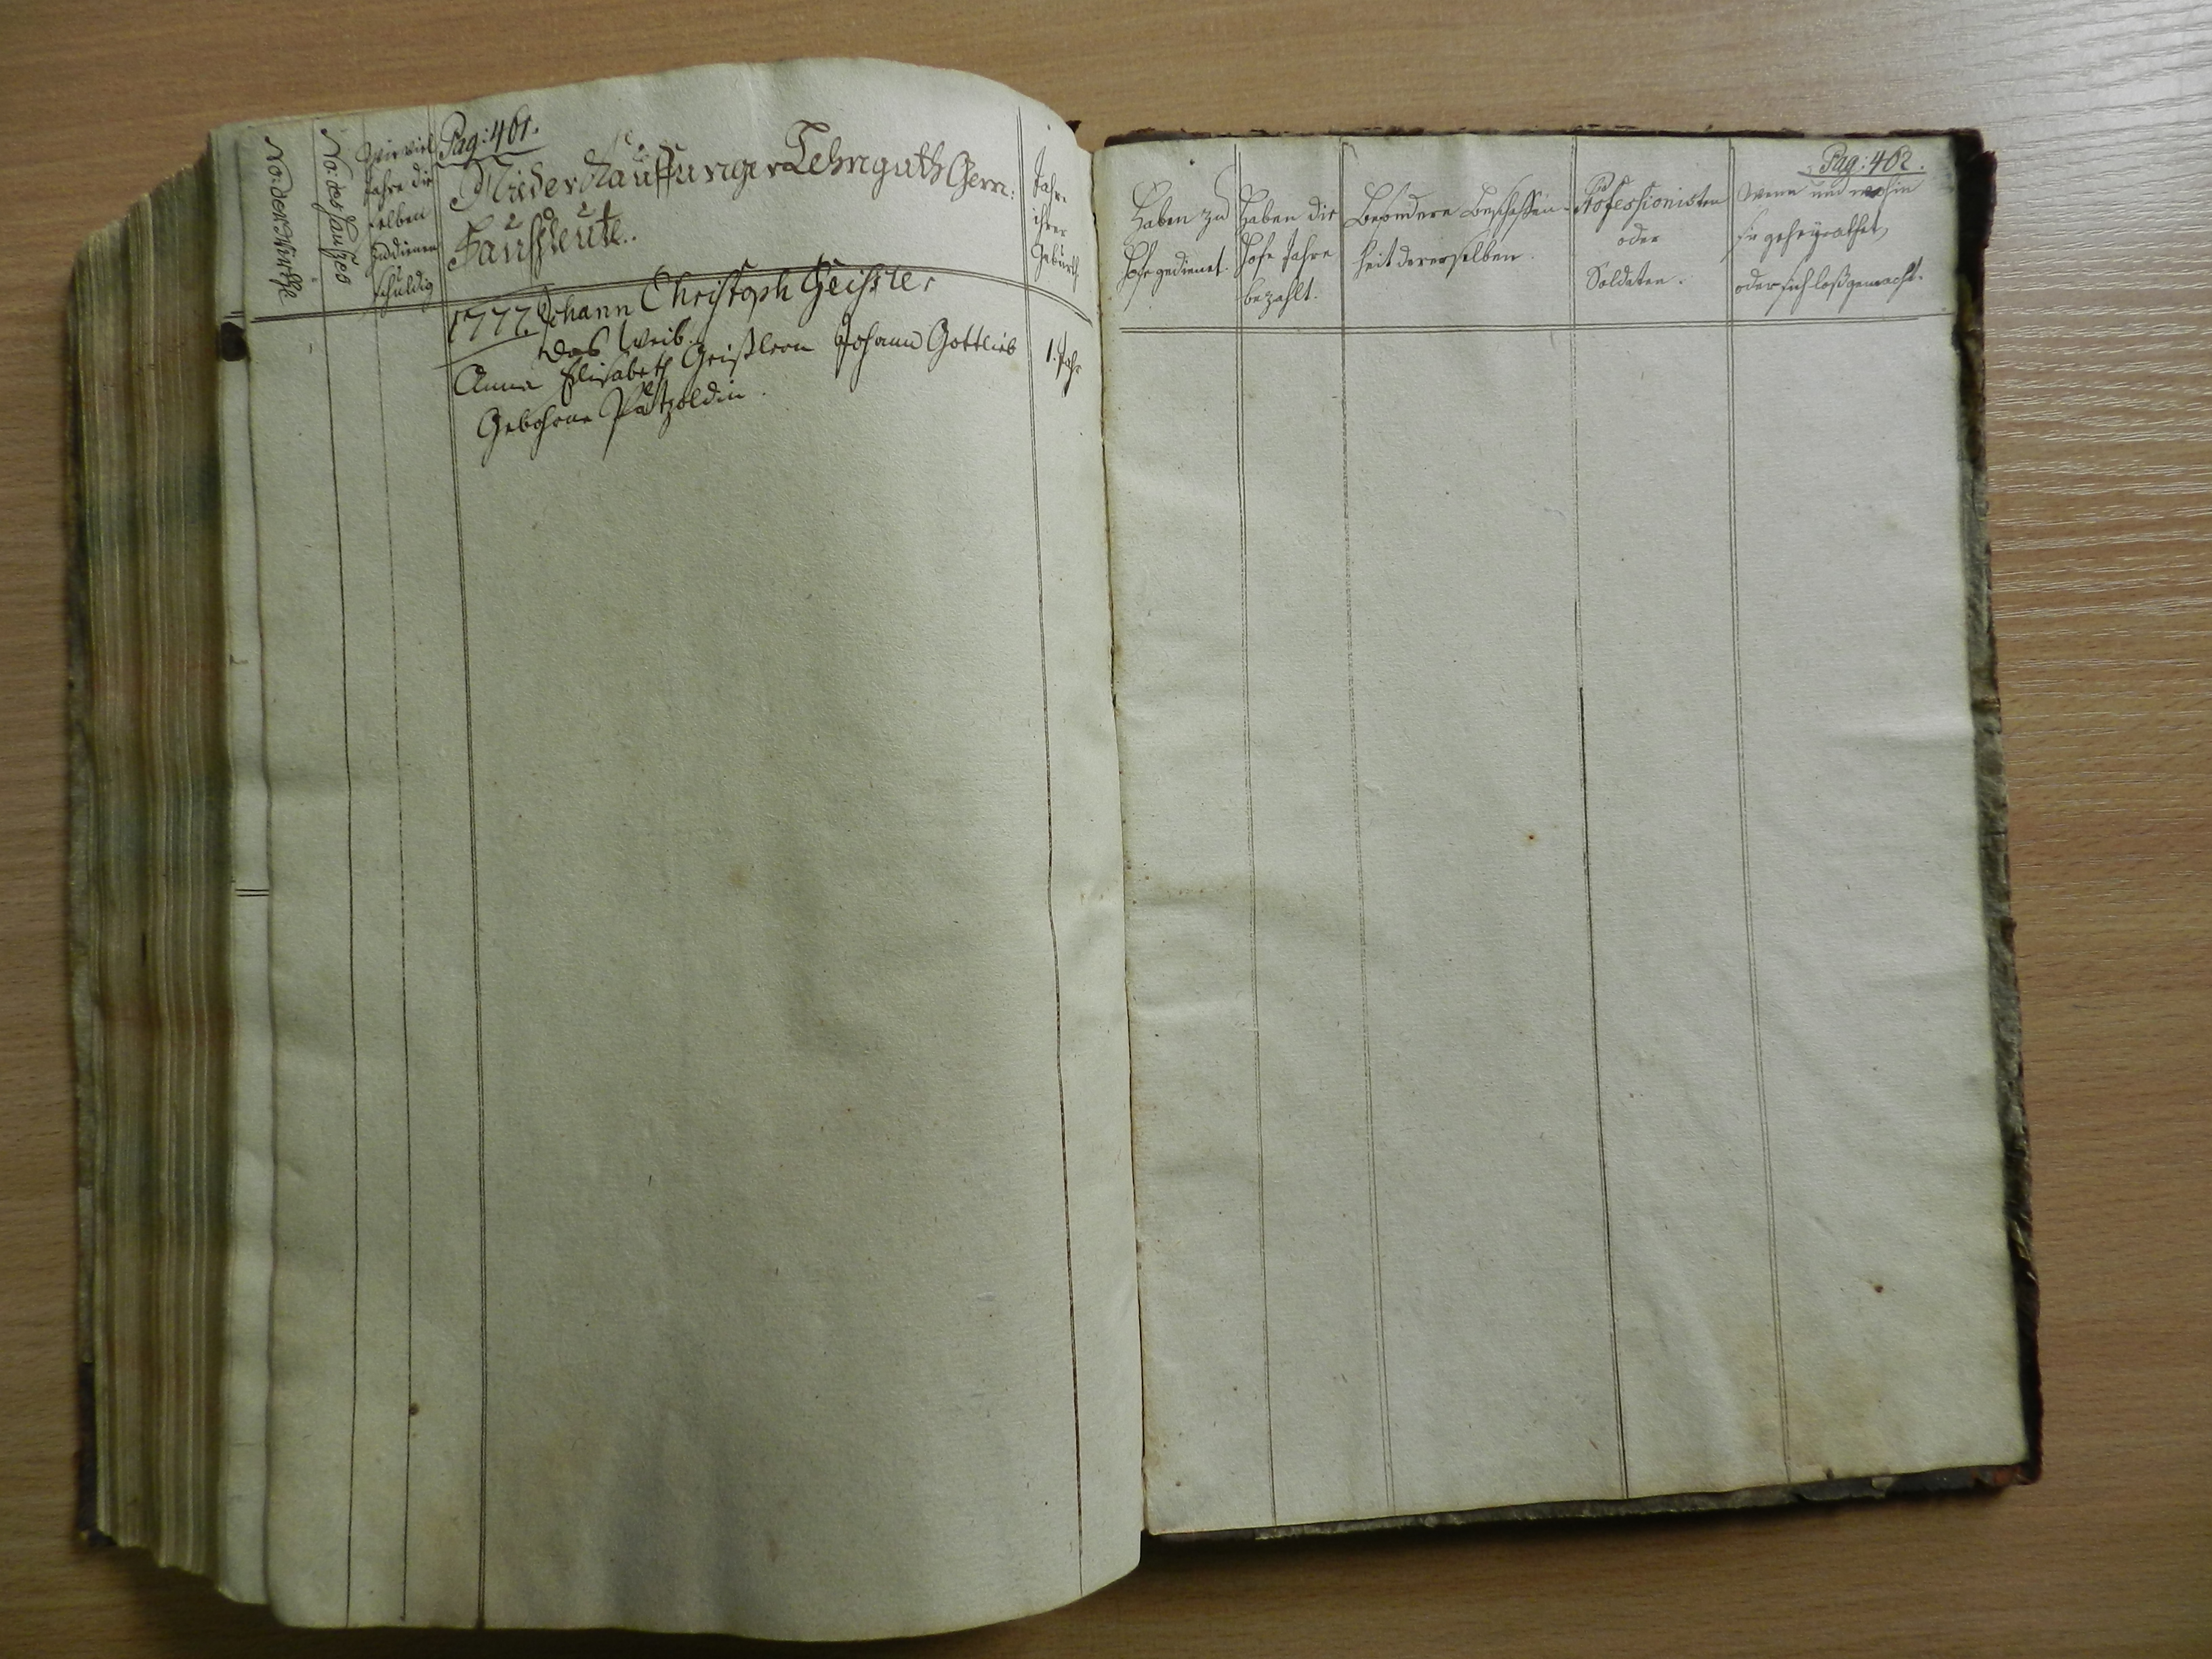 No: der Wirthe
No: des Hauses
Wie viel
Jahre die
selben
zu dienen
schuldig
Pag: 401.
Nieder Kauffunger Lehnguth Gem:
Haußleute.
Jahre
ihrer
Geburth
1777. Johann Christoph Geißler
das Weib.
Anna Elisabeth Geißlern Johann Gottlieb
1. Jahr
Gebohrne Pätzoldin.
Pag: 402.
Haben zu
Hofe gedienet.
Haben die
Hofe Jahre
bezahlt.
Besondere Beschaffen-
heit derer selben.
Professionisten
oder
Soldaten.
Wenn und wohin
sie geheyrathet,
oder sich loßgemacht.